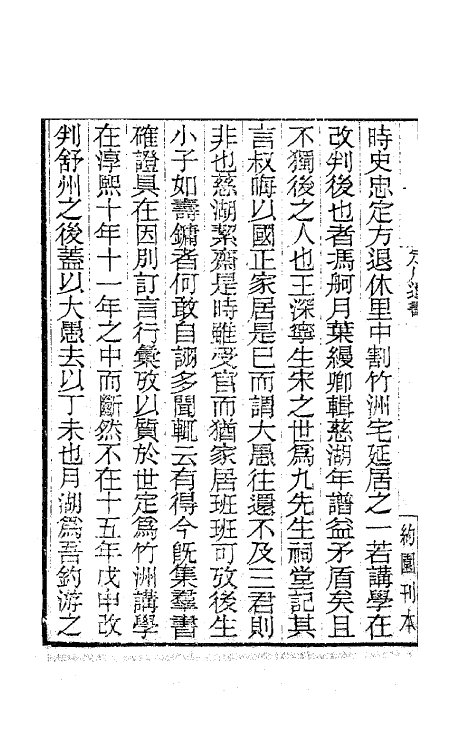 時史忠定方退休里中割竹洲宅延居之一若講學在
改判後也者馮舸月葉縵卿輯慈湖年譜益矛盾矣且
不獨後之人也王深寧生宋之世爲九先生祠堂記其
言叔晦以國正家居是已而謂大愚往還不及三君則
非也慈湖絜齋是時雖受官而猶家居班班可攷後生
小子如壽鏞者何敢自詡多聞輒云有得今旣集羣書
確證具在因別訂言行彙攷以質於世定爲竹洲講學
在淳熙十年十一年之中而斷然不在十五年戊申改
判舒州之後蓋以大愚去以丁未也月湖爲吾釣游之
約園刊本